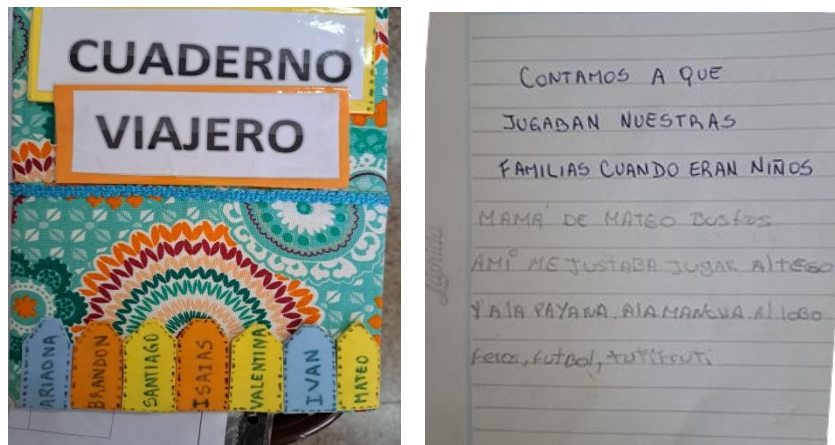 CUADERNO
VIAJERO
ARIADNA
BRANDON
SANTIAGO
ISAIAS
VALENTINA
IVAN
MATEO
CONTAMOS A QUE
JUGABAN NUESTRAS
FAMILIAS CUANDO ERAN NIÑOS
MAMÁ DE MATEO BUSTOS
AMI ME JUSTABA JUGAR AlTEGO
Y AlA PAYANA, AlA MANCHA Al lobo
feros, futbol, tutifruti